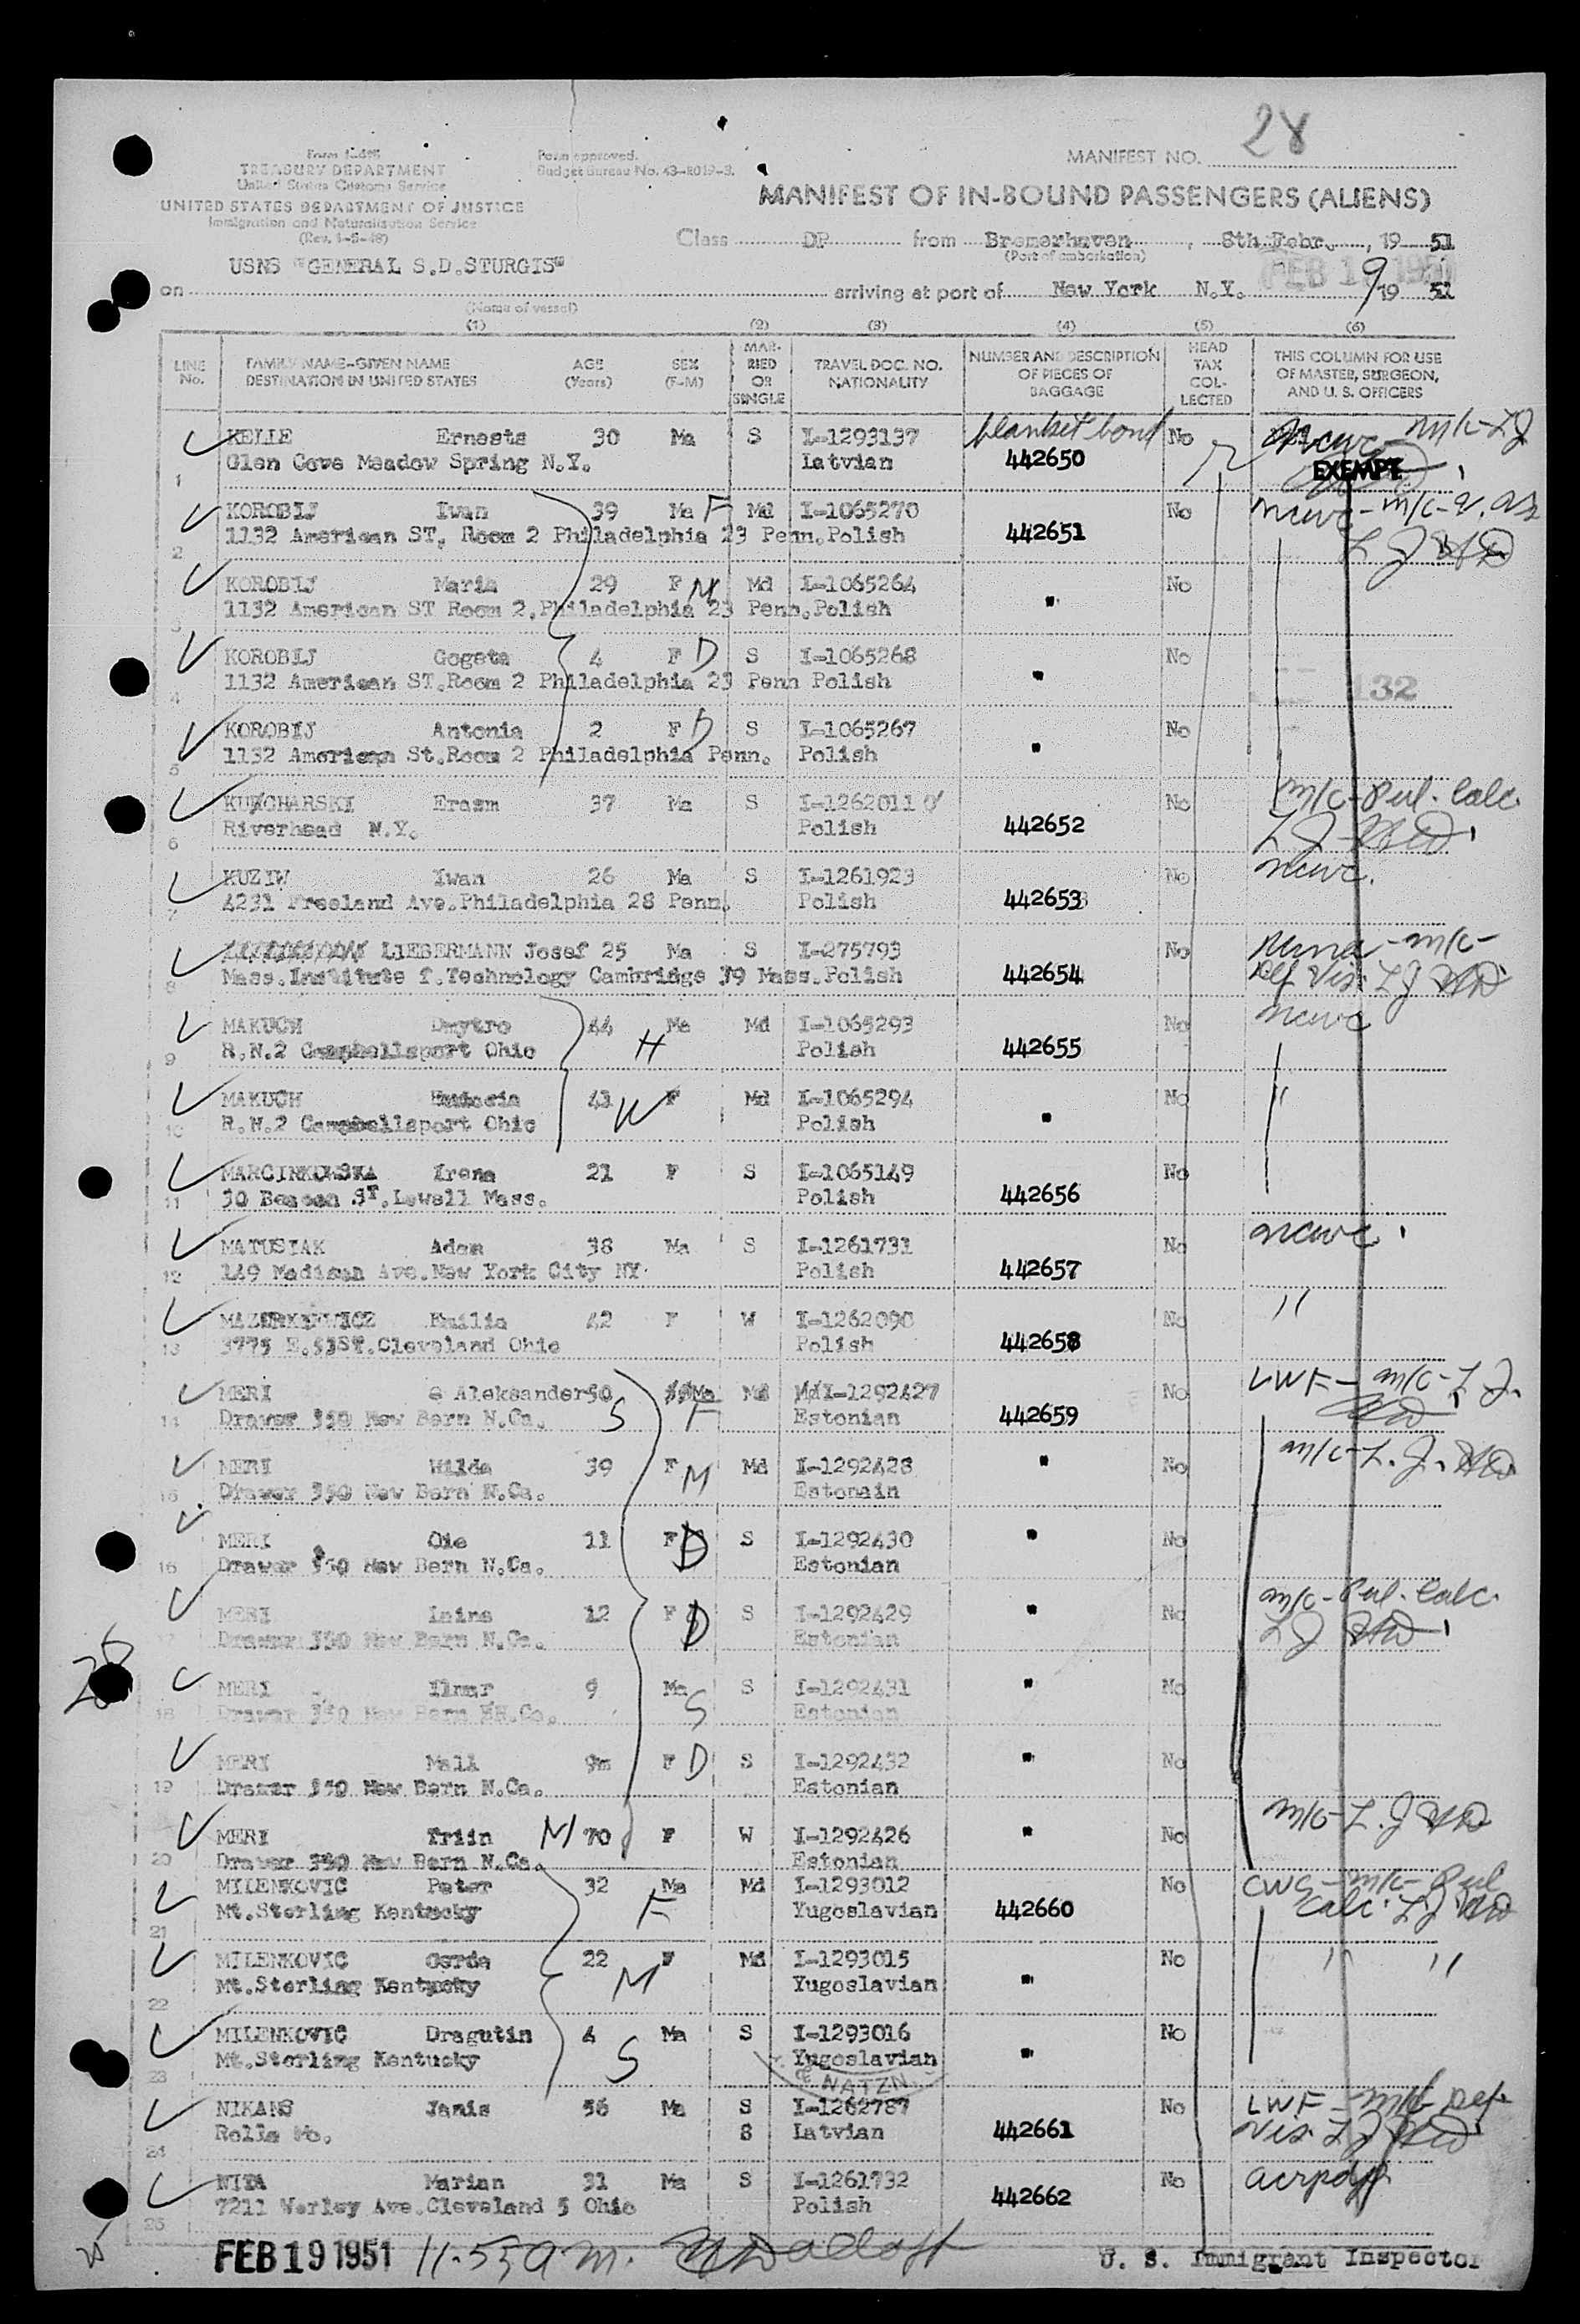 28
Form I-415
TREASURY DEPARTMENT
United States Customs Service
UNITED STATES DEPARTMENT OF JUSTICE
Immigration and Naturalization Service
(Rev. 1-5-48)
Form approved.
Budget Bureau No. 43-R019-3.
MANIFEST NO.
MANIFEST OF IN-BOUND PASSENGERS (ALIENS)
Class DP from Bremerhaven, 8th Febr., 19 51
(Port of embarkation)
USNS "GENERAL S.D.STURGIS"
on arriving at port of New York N.Y. 19 51
(Name of vessel)
(1) (2) (3) (4) (5) (6)
LINE No. FAMILY NAME-GIVEN NAME DESTINATION IN UNITED STATES AGE (Years) SEX (F-M) MARRIED OR SINGLE TRAVEL DOC. NO. NATIONALITY NUMBER AND DESCRIPTION OF PIECES OF BAGGAGE HEAD TAX COLLECTED THIS COLUMN FOR USE OF MASTER, SURGEON, AND U. S. OFFICERS
KELLE Ernests 30 Ma S I-1293137 blanket bond No ncwc - m/c - LJ
1 Glen Cove Meadow Spring N.Y. Latvian 442650 EXEMPT
KOROBIJ Iwan 39 Ma F Md I-1065270 No ncwc - m/c -
2 1132 American ST, Room 2 Philadelphia 23 Penn. Polish 442651 L J
KOROBIJ Maria 29 F M Md I-1065264 No
3 1132 American ST Room 2, Philadelphia 23 Penn. Polish "
KOROBIJ Gogeta 4 F D S I-1065268 No
4 1132 American ST.Room 2 Philadelphia 23 Penn Polish " 132
KOROBIJ Antonia 2 F D S I-1065267 No
5 1132 American St.Room 2 Philadelphia Penn. Polish "
KUCHARSKI Erasm 37 Ma S I-1262011 No m/c - Pul. Calc.
6 Riverhead N.Y. Polish 442652 L J
KUZIW Iwan 26 Ma S I-1261923 No ncwc.
7 4231 Freeland Ave.Philadelphia 28 Penn. Polish 442653
LIEBERMANN Josef 25 Ma S I-275793 No - m/c -
8 Mass.Institute f.Technology Cambridge 39 Mass. Polish 442654 Def Vis. L J
MAKUCH Dmytro 44 Ma Md I-1065293 No ncwc
9 R.N.2 Campbellsport Ohio H Polish 442655
MAKUCH 43 W F Md I-1065294 No "
10 R.N.2 Campbellsport Ohio Polish "
MARCINKOWSKA Irena 21 F S I-1065149 No
11 30 Beacon ST.Lowell Mass. Polish 442656
MATUSIAK Adam 38 Ma S I-1261731 No ncwc
12 149 Madison Ave.New York City NY Polish 442657
MAZURKIEWICZ Emilia 42 F W I-1262090 No "
13 3775 E.53ST.Cleveland Ohio Polish 442658
MERI Aleksander 50 Ma Md I-1292427 No LWF - m/c - L J.
14 Drawer 350 New Bern N.Ca. S F Estonian 442659
MERI Hilda 39 F M Md I-1292428 " No m/c - L. J.
15 Drawer 350 New Bern N.Ca. Estonain
MERI Oie 11 F D S I-1292430 " No
16 Drawer 350 New Bern N.Ca. Estonian
MERI Laine 12 F D S I-1292429 " No m/c - Pul. Calc.
17 Drawer 350 New Bern N.Ca. Estonian L J
MERI Ilmar 9 Ma S I-1292431 " No
18 Drawer 350 New Bern N.Ca. S Estonian
MERI Mall 9m F D S I-1292432 " No
19 Drawer 350 New Bern N.Ca. Estonian
MERI Triin M 70 F W I-1292426 " No m/c - L. J
20 Drawer 350 New Bern N.Ca. Estonian
MILENKOVIC Peter 32 Ma Md I-1293012 No CWS - m/c - Pul
21 Mt.Sterling Kentucky F Yugoslavian 442660 Calc. L J
MILENKOVIC Gerda 22 F Md I-1293015 No " "
22 Mt.Sterling Kentucky M Yugoslavian "
MILENKOVIC Dragutin 4 Ma S I-1293016 No
23 Mt.Sterling Kentucky S Yugoslavian "
& NATZN.
NIKANS Janis 56 Ma S I-1262787 No LWF - m/c Def
24 Rolla Mo. S Latvian 442661 Vis. L J
NITA Marian 31 Ma S I-1261732 No acrpdp
25 7211 Worley Ave.Cleveland 5 Ohio Polish 442662
28
FEB 19 1951 11.55 a m. U. S. Immigrant Inspector